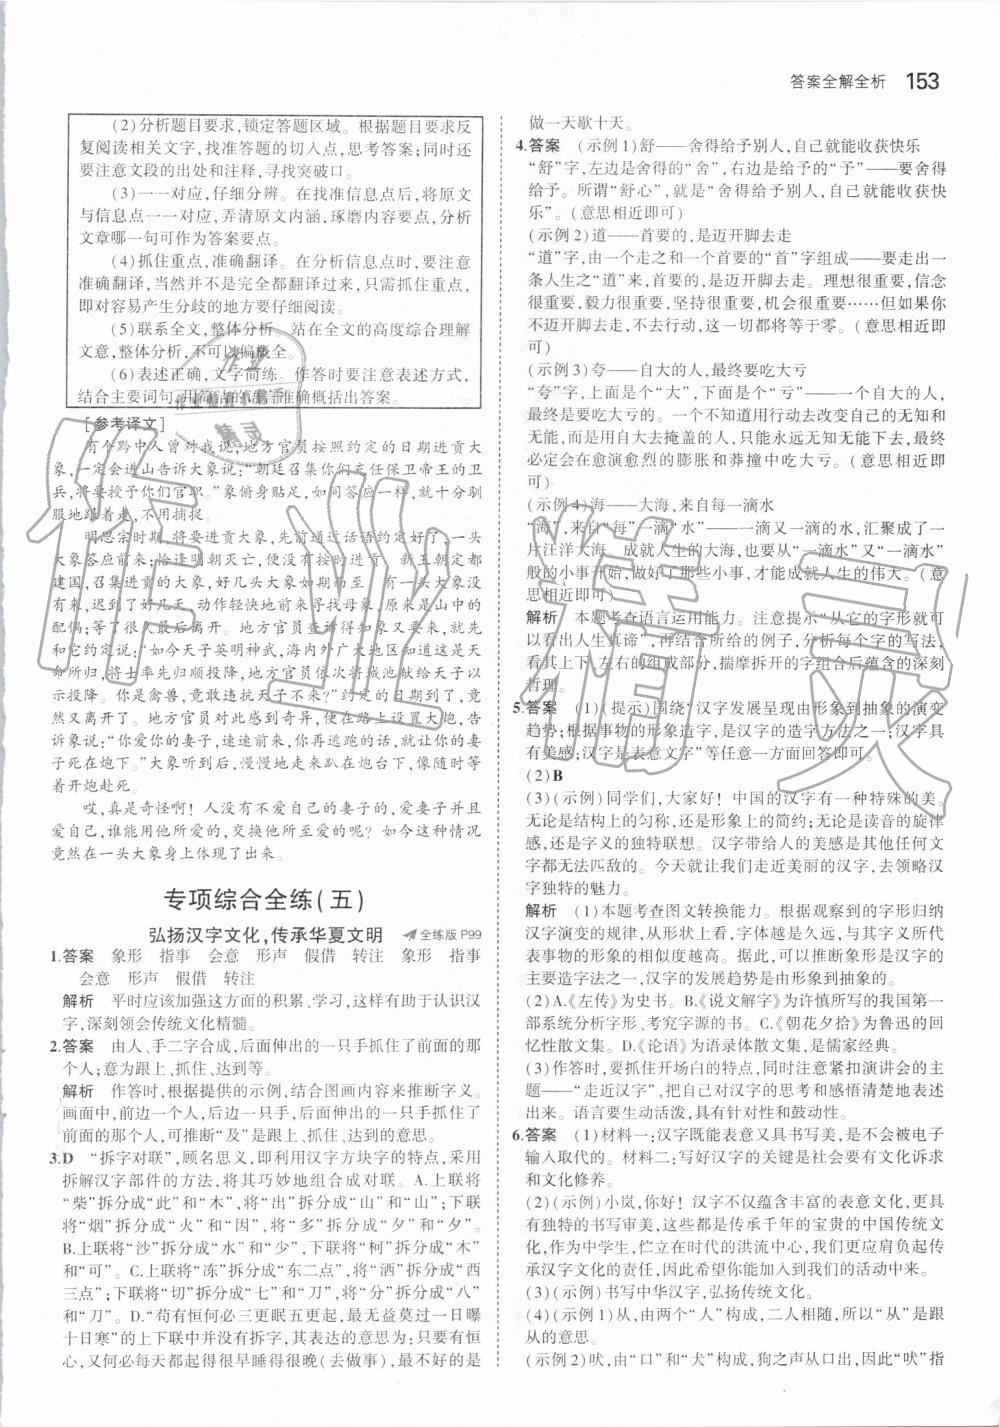 答案全解全析 153
(2)分析题目要求,锁定答题区域。根据题目要求反
复阅读相关文字,找准答题的切入点,思考答案;同时还
要注意文段的出处和注释,寻找突破口。
(3)一一对应,仔细分辨。在找准信息点后,将原文
与信息点一一对应,弄清原文内涵,琢磨内容要点,分析
文章哪一句可作为答案要点。
(4)抓住重点,准确翻译。在分析信息点时,要注意
准确翻译,当然并不是完全都翻译过来,只需抓住重点,
即对容易产生分歧的地方要仔细阅读。
(5)联系全文,整体分析。站在全文的高度综合理解
文意,整体分析,不可以偏概全。
(6)表述正确,文字简练。作答时要注意表述方式,
结合主要词句,用简洁的语言准确概括出答案。
[参考译文]
有个黔中人曾对我说:地方官员按照约定的日期进贡大
象,一定会进山告诉大象说:“朝廷召集你们充任保卫帝王的卫
兵,将要授予你们官职。”象俯身贴足,如同答应一样,就十分驯
服地跟着走,不用捕捉。
明思宗时期,将要进贡大象,先前通过话语约定好了,一头
大象答应前来;恰逢明朝灭亡,便没有按期
新王朝定都
建国,召集进贡的大象,好几头大象都如期而至,有一头象没有
来,迟到了好几天,动作轻快地前来寻找母象,原来是山中的
配偶;等了很久最后离开。地方官员查访得知如象又来了,就先
和它约定说:“如今天子英明神武,海内外广大地区知道这是天
命所归,将士率先归顺朝廷,依次将城池献给天子以
示投降。你是禽兽,竟敢违抗天子不来?”约定的日期到了,竟
然又离开了。地方官员对此感到奇异,便在路上设置大炮,告
诉象说:“你爱你的妻子,速速前来,你再逃跑的话,就让你的妻
子死在炮下。”大象听到后,慢慢地走向大炮,伏在炮下,等待
着开炮赴死。
哎,真是奇怪啊!人没有不爱自己的妻子的,至于爱妻子胜过爱自
己,谁能用他的爱,交换他所至爱的呢?如今这种情况
竟然在一头大象身上体现了出来。
专项综合全练(五)
弘扬汉字文化,传承华夏文明 全练版 P99
1.答案 象形 指事 会意 形声 假借 转注 象形 指事
会意 形声 假借 转注
解析 平时应该加强这方面的积累、学习,这样有助于认识汉
字,深刻领会传统文化精髓。
2.答案 由人、手二字合成,后面伸出的一只手抓住了前面的那
个人;意为跟上、抓住、达到等。
解析 作答时,根据提供的示例,结合图画内容来推断字义。
画面中,前边一个人,后边一只手,后面伸出的一只手抓住了
前面的那个人,可推断“及”是跟上、抓住、达到的意思。
3.D “拆字对联”,顾名思义,即利用汉字方块字的特点,采用
拆解汉字部件的方法,将其巧妙地组合成对联。A.上联将
“柴”拆分成“此”和“木”,将“出”拆分成“山”和“山”;下联
将“烟”拆分成“火”和“因”,将“多”拆分成“夕”和“夕”。
B.上联将“沙”拆分成“水”和“少”,下联将“柯”拆分成“木”
和“可”。C.上联将“冻”拆分成“东二点”,将“洒”拆分成“西
三点”;下联将“切”拆分成“七”和“刀”,将“分”拆分成“八”
和“刀”。D.“苟有恒何必三更眠五更起,最无益莫过一日曝
十日寒”的上下联中没有拆字,其下联的意思为:只要有恒
心,又何必每天都起得很早睡得很晚(去做事),最不好的是
做一天歇十天。
4.答案 (示例1)舒——舍得给予别人,自己就能收获快乐
“舒”字,左边是舍得的“舍”,右边是给予的“予”——要舍得
给予。所谓“舒心”,就是“舍得给予别人,自己就能收获快
乐”。(意思相近即可)
(示例2)道——首要的,是迈开脚去走
“道”字,由一个走之和一个首要的“首”字组成——要走出一
条人生之“道”来,首要的,是迈开脚去走。理想很重要,信念
很重要,毅力很重要,坚持很重要,机会很重要……但如果你
不迈开脚去走,不去行动,这一切都将等于零。(意思相近即
可)
(示例3)夸——自大的人,最终要吃大亏
“夸”字,上面是个“大”,下面是个“亏”——一个自大的人,
最终是要吃大亏的。一个不知道用行动去改变自己的无知和
无能,而是用自大去掩盖的人,只能永远无知无能,最终
必定会在愈演愈烈的膨胀和莽撞中吃大亏。(意思相近即
可)
(示例4)海——大海,来自每一滴水
“海”,来自“每”一滴“水”——一滴又一滴的水,汇聚成了一
片汪洋大海。成就人生的大海,也要从“一滴水”又“一滴水”
般的小事开始,做好了每一件小事,才能成就人生的伟大。(意
思相近即可)
解析 本题考查语言运用能力。注意提示“从它的字形就可
以看出人生真谛”,再结合所给的例子,分析每个字的写法,
看其上下、左右的组成部分,揣摩拆开的字组合后蕴含的深刻
哲理。
5.答案 (1)(提示)围绕“汉字发展呈现由形象到抽象的演变
趋势;根据事物的形象造字,是汉字的造字方法之一;汉字具
有美感;汉字是表意文字”等任意一方面回答即可。
(2)B
(3)(示例)同学们,大家好!中国的汉字有一种特殊的美。
无论是结构上的匀称,还是形象上的简约;无论是读音的旋律
感,还是字义的独特联想。汉字带给人的美感是其他任何文
字都无法匹敌的。今天就让我们走近美丽的汉字,去领略汉
字独特的魅力。
解析 (1)本题考查图文转换能力。根据观察到的字形归纳
汉字演变的规律,从表中的甲骨文来看,与其字义所代
表的事物的形象的相似度越高。因此,可以推断象形是汉字的
主要造字法之一,汉字的发展趋势是由形象到抽象的。
(2)A.《左传》为史书。B.《说文解字》为许慎所写的我国第一
部系统分析字形、考究字源的书。C.《朝花夕拾》为鲁迅的回
忆性散文集。D.《论语》为语录体散文集,是儒家经典。
(3)作答时,要抓住开场白的特点,同时注意紧扣演讲会的主
题——“走近汉字”,把自己对汉字的思考和感悟清楚地表述
出来。语言要生动活泼,具有针对性和鼓动性。
6.答案 (1)材料一:汉字既能表意又具书写美,是不会被电子
输入取代的。材料二:写好汉字的关键是社会要有文化诉求
和文化修养。
(2)(示例)小岚,你好!汉字不仅蕴含丰富的表意文化,更具
有独特的书写审美,这些都是传承千年的宝贵的中国传统文
化,作为中学生,伫立在时代的洪流中心,我们更应肩负起传
承汉字文化的责任,因此希望你能加入我们的活动中来。
(3)(示例)书写中华汉字,弘扬传统文化。
(4)(示例1)从,由两个“人”构成,二人相随,所以“从”是跟
从的意思。
(示例2)吠,由“口”和“犬”构成,狗之声从口出,因此“吠”指